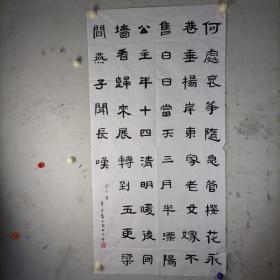 何處哀箏隨急管櫻花永
巷垂楊岸東家老女嫁不
售白日當天三月半溧陽
公主年十四清明暖後同
墻看歸來展轉到五更梁
間燕子聞長嘆